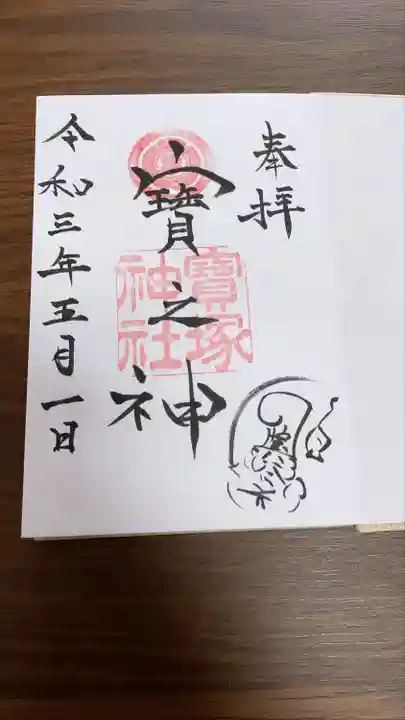 奉拝
寶之神
寶塚
神社
令和三年五月一日